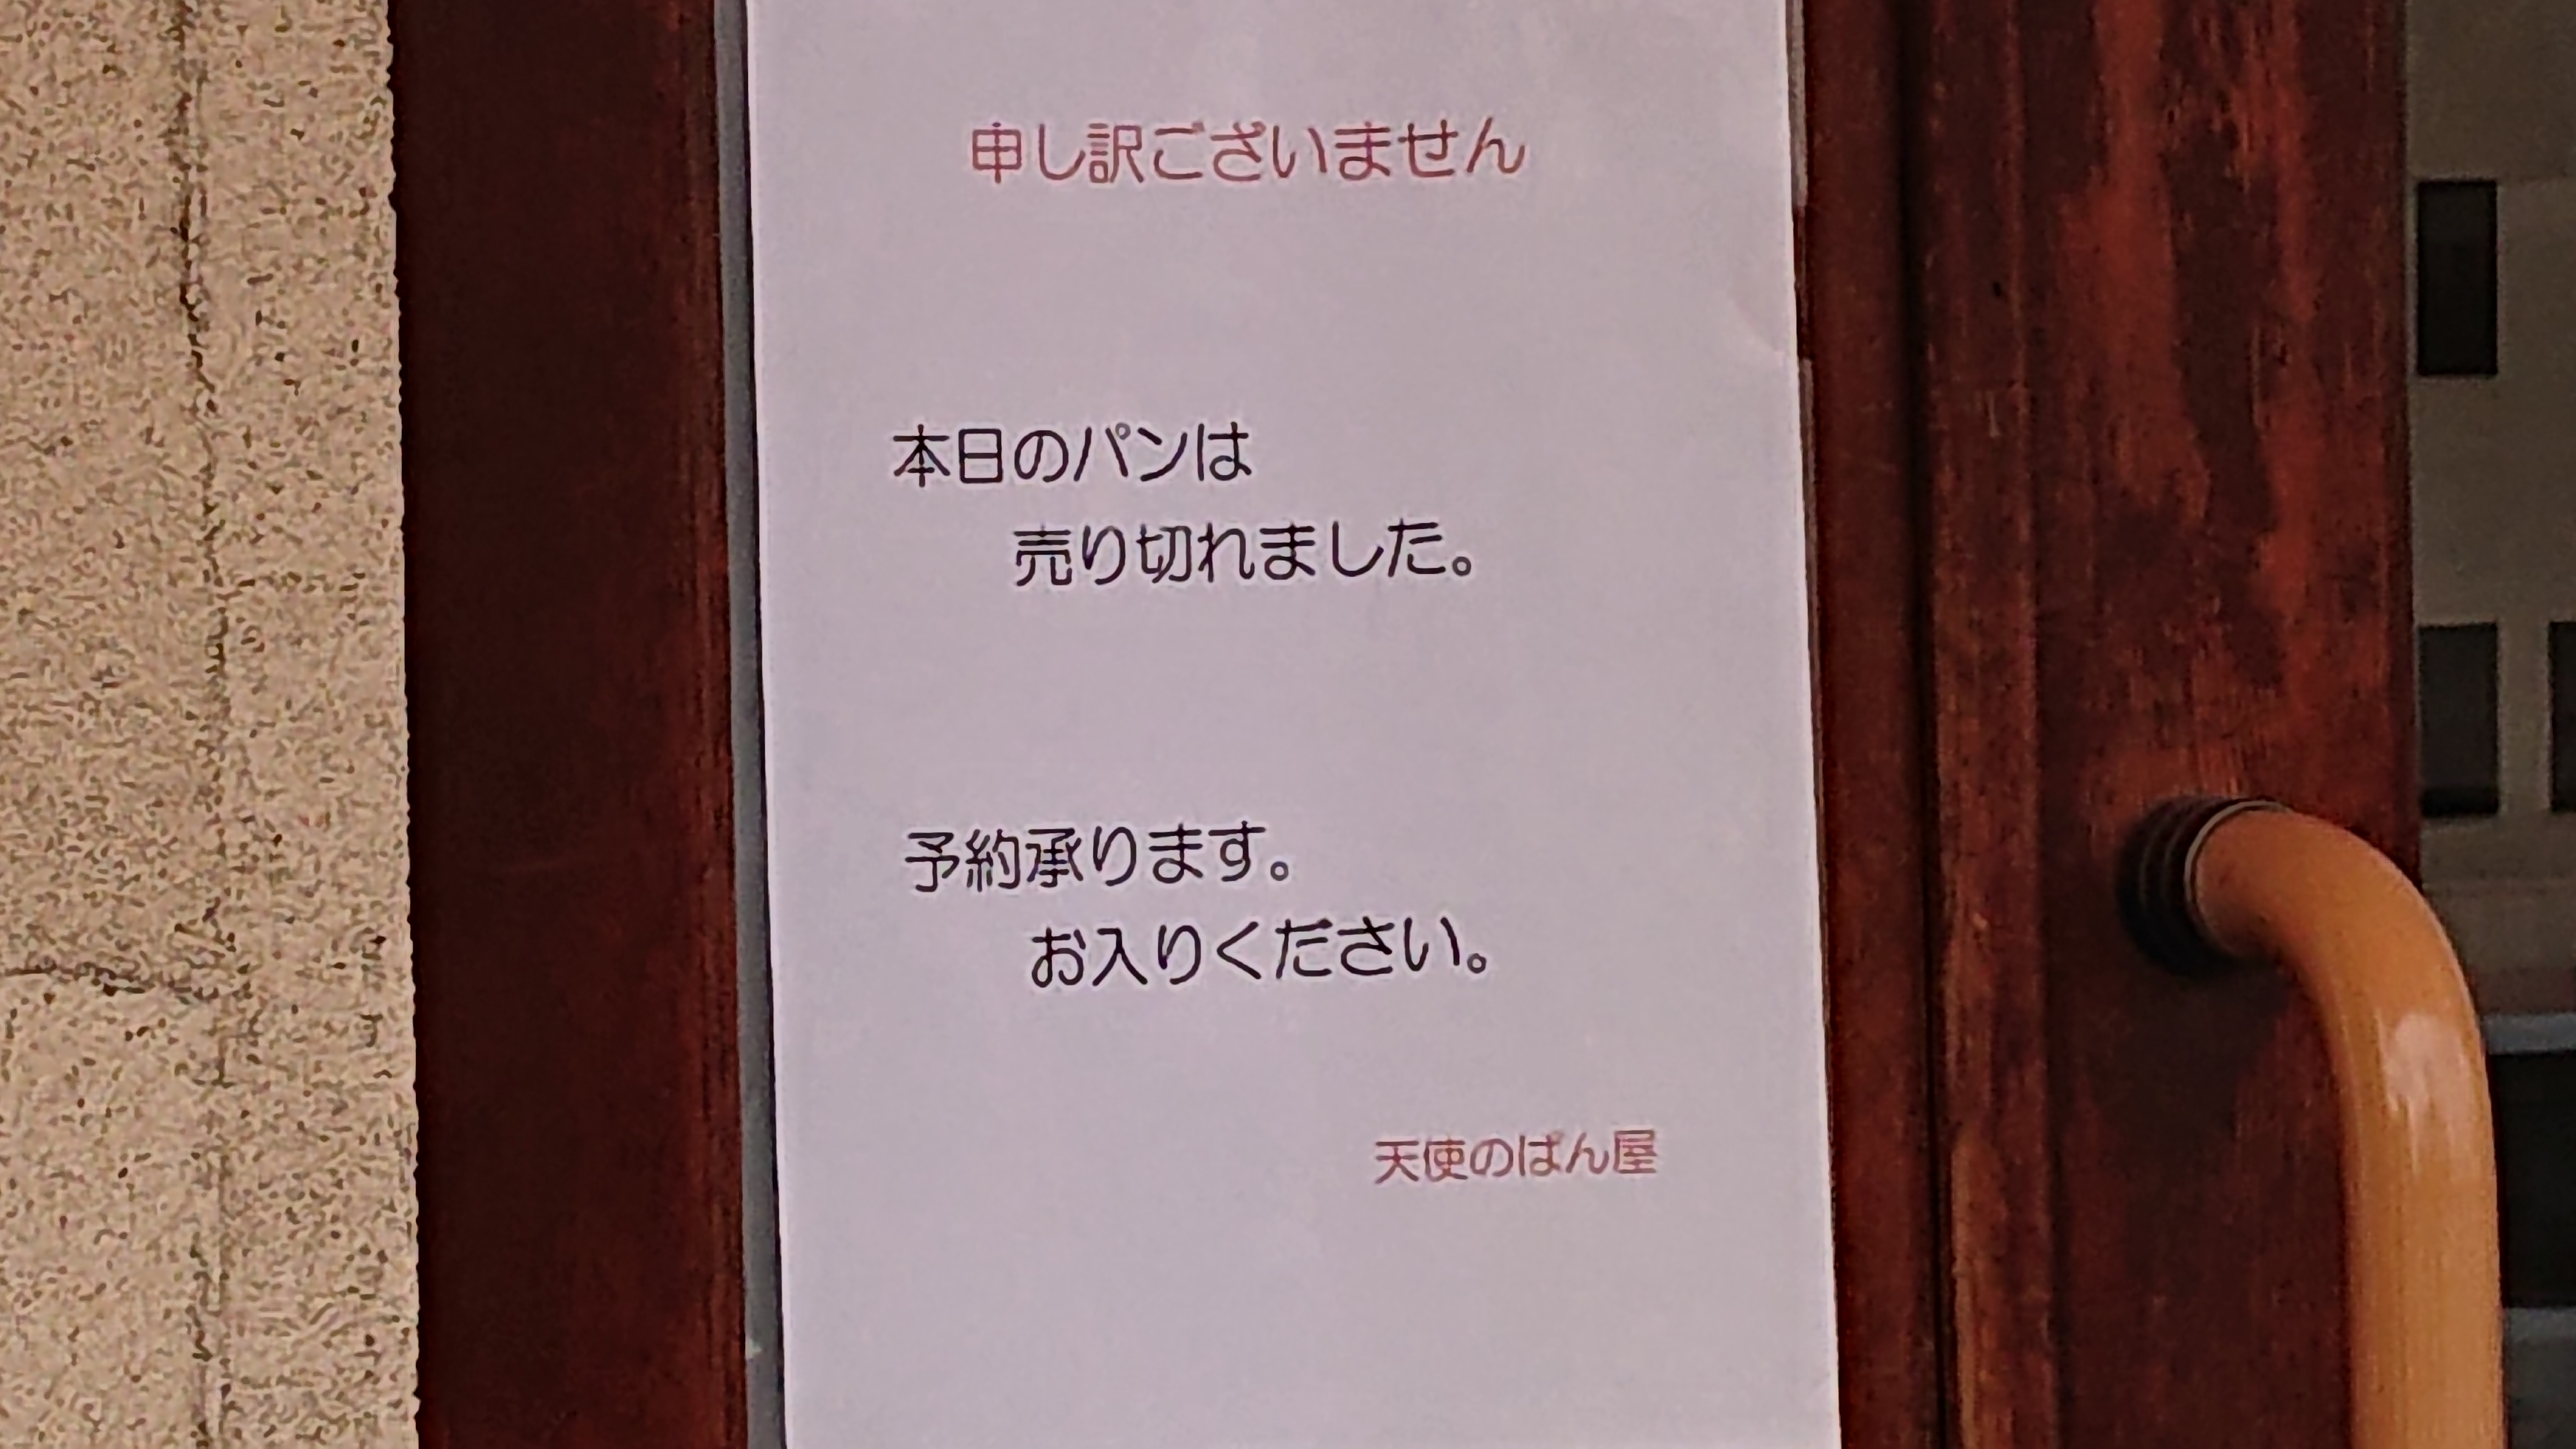 申し訳ございません
本日のパンは
売り切れました。
予約承ります。
お入りください。
天使のぱん屋